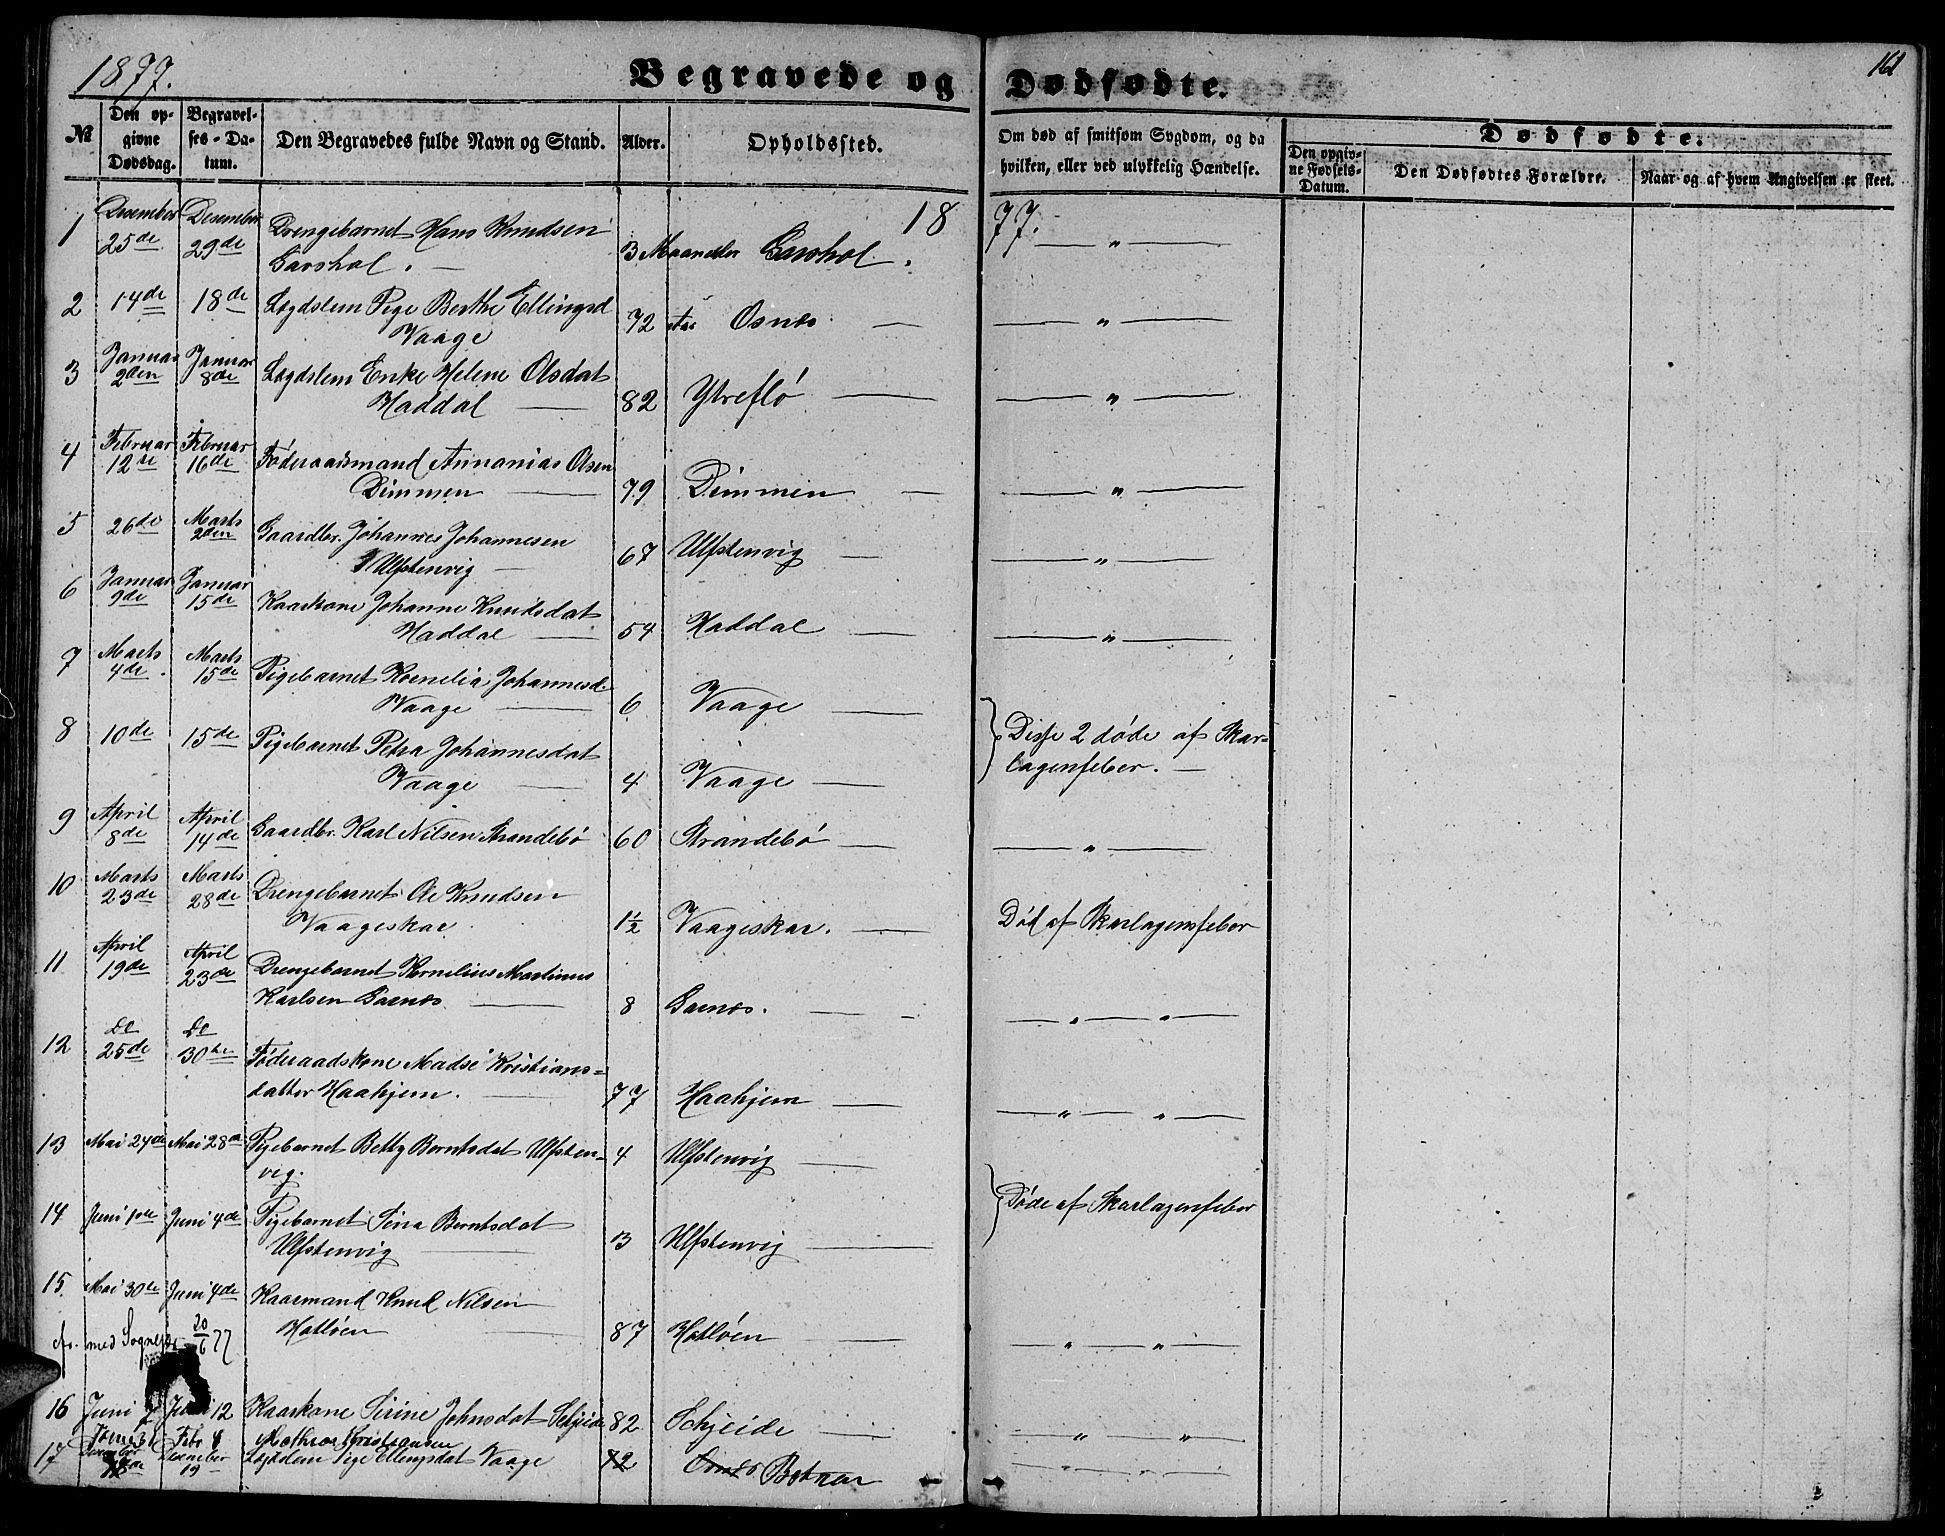 1877.
Begravede og Dødfødte.
161
№
Den opgivne Dødsdag.
Begravelses-Datum.
Den Begravedes fulde Navn og Stand.
Alder.
Opholdssted.
Om død af smitsom Sygdom, og da hvilken, eller ved ulykkelig Hændelse.
Dødfødte.
Den opgivne Fødsels-Datum.
Den Dødfødtes Forældre.
Naar og af hvem Angivelsen er skeet.
1877.
1 Desember 25de Desember 29de Drengebarnet Hans Knudsen
Garshol. 3 Maaneder Garshol. — " —
2 14de 18de Lægdslem Pige Berthe Ellingsd
Vaage 72 Aar Osnes — " —
3 Januar 2den Januar 8de Lægdslem Enke Helene Olsdat
Haddal 82 Ytreflø — " —
4 Februar 12te Februar 16de Føderaadsmand Annanias Olsen
Dimmen 79 Dimmen — " —
5 26de Marts 2den Gaardbr. Johannes Johannesen
Ulfstenvig 67 Ulfstenvig — " —
6 Januar 9de Januar 15de Kaarkone Johanne Knudsdat
Haddal 54 Haddal — " —
7 Marts 4de Marts 15de Pigebarnet Kornelia Johannesd.
Vaage 6 Vaage
8 10de 15de Pigebarnet Petra Johannesdat
Vaage 4 Vaage
Disse 2 døde af Skar-
lagensfeber. —
9 April 8de April 14de Gaardbr. Karl Nilsen Strandebø 60 Strandebø — " —
10 Marts 23de Marts 28de Drengebarnet Ole Knudsen
Vaageskar 1½ Vaageskar. Død af Skarlagensfeber
11 April 19de April 23de Drengebarnet Kornelius Martinus
Karlsen Garnes 8 Garnes. — " — " —
12 Do 25de Do 30te Føderaadskone Madse Kristians=
datter Haahjem. 77 Haahjem — " — " —
13 Mai 24de Mai 28de Pigebarnet Betty Berntsdat Ulfsten=
vig. 4 Ulfstenvig
14 Juni 1ste Juni 4de Pigebarnet Sina Berntsdat
Ulfstenvig 3 Ulfstenvig
Døde af Skarlagensfeber
15 Mai 30te Juni 4de Kaarmand Knud Nilsen
Hatløen 87 Hatløen — " — " —
med 20/6 77
16 Juni 7 Juni 12 Kaarkone Sirine Johnsdat Schjeide 82 Schjeide — " — " —
Febr 4 Kristiansen
17 Desember Desember 19 Lægdslem Pige Ellingsdat Vaage 72 Osnes Botnen — " — " —